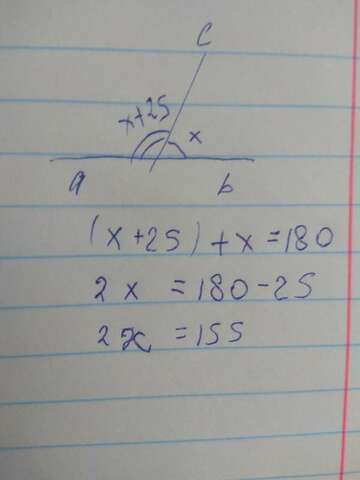 c
x+25
x
a b
(x+25)+x=180
2x =180-25
2x =155